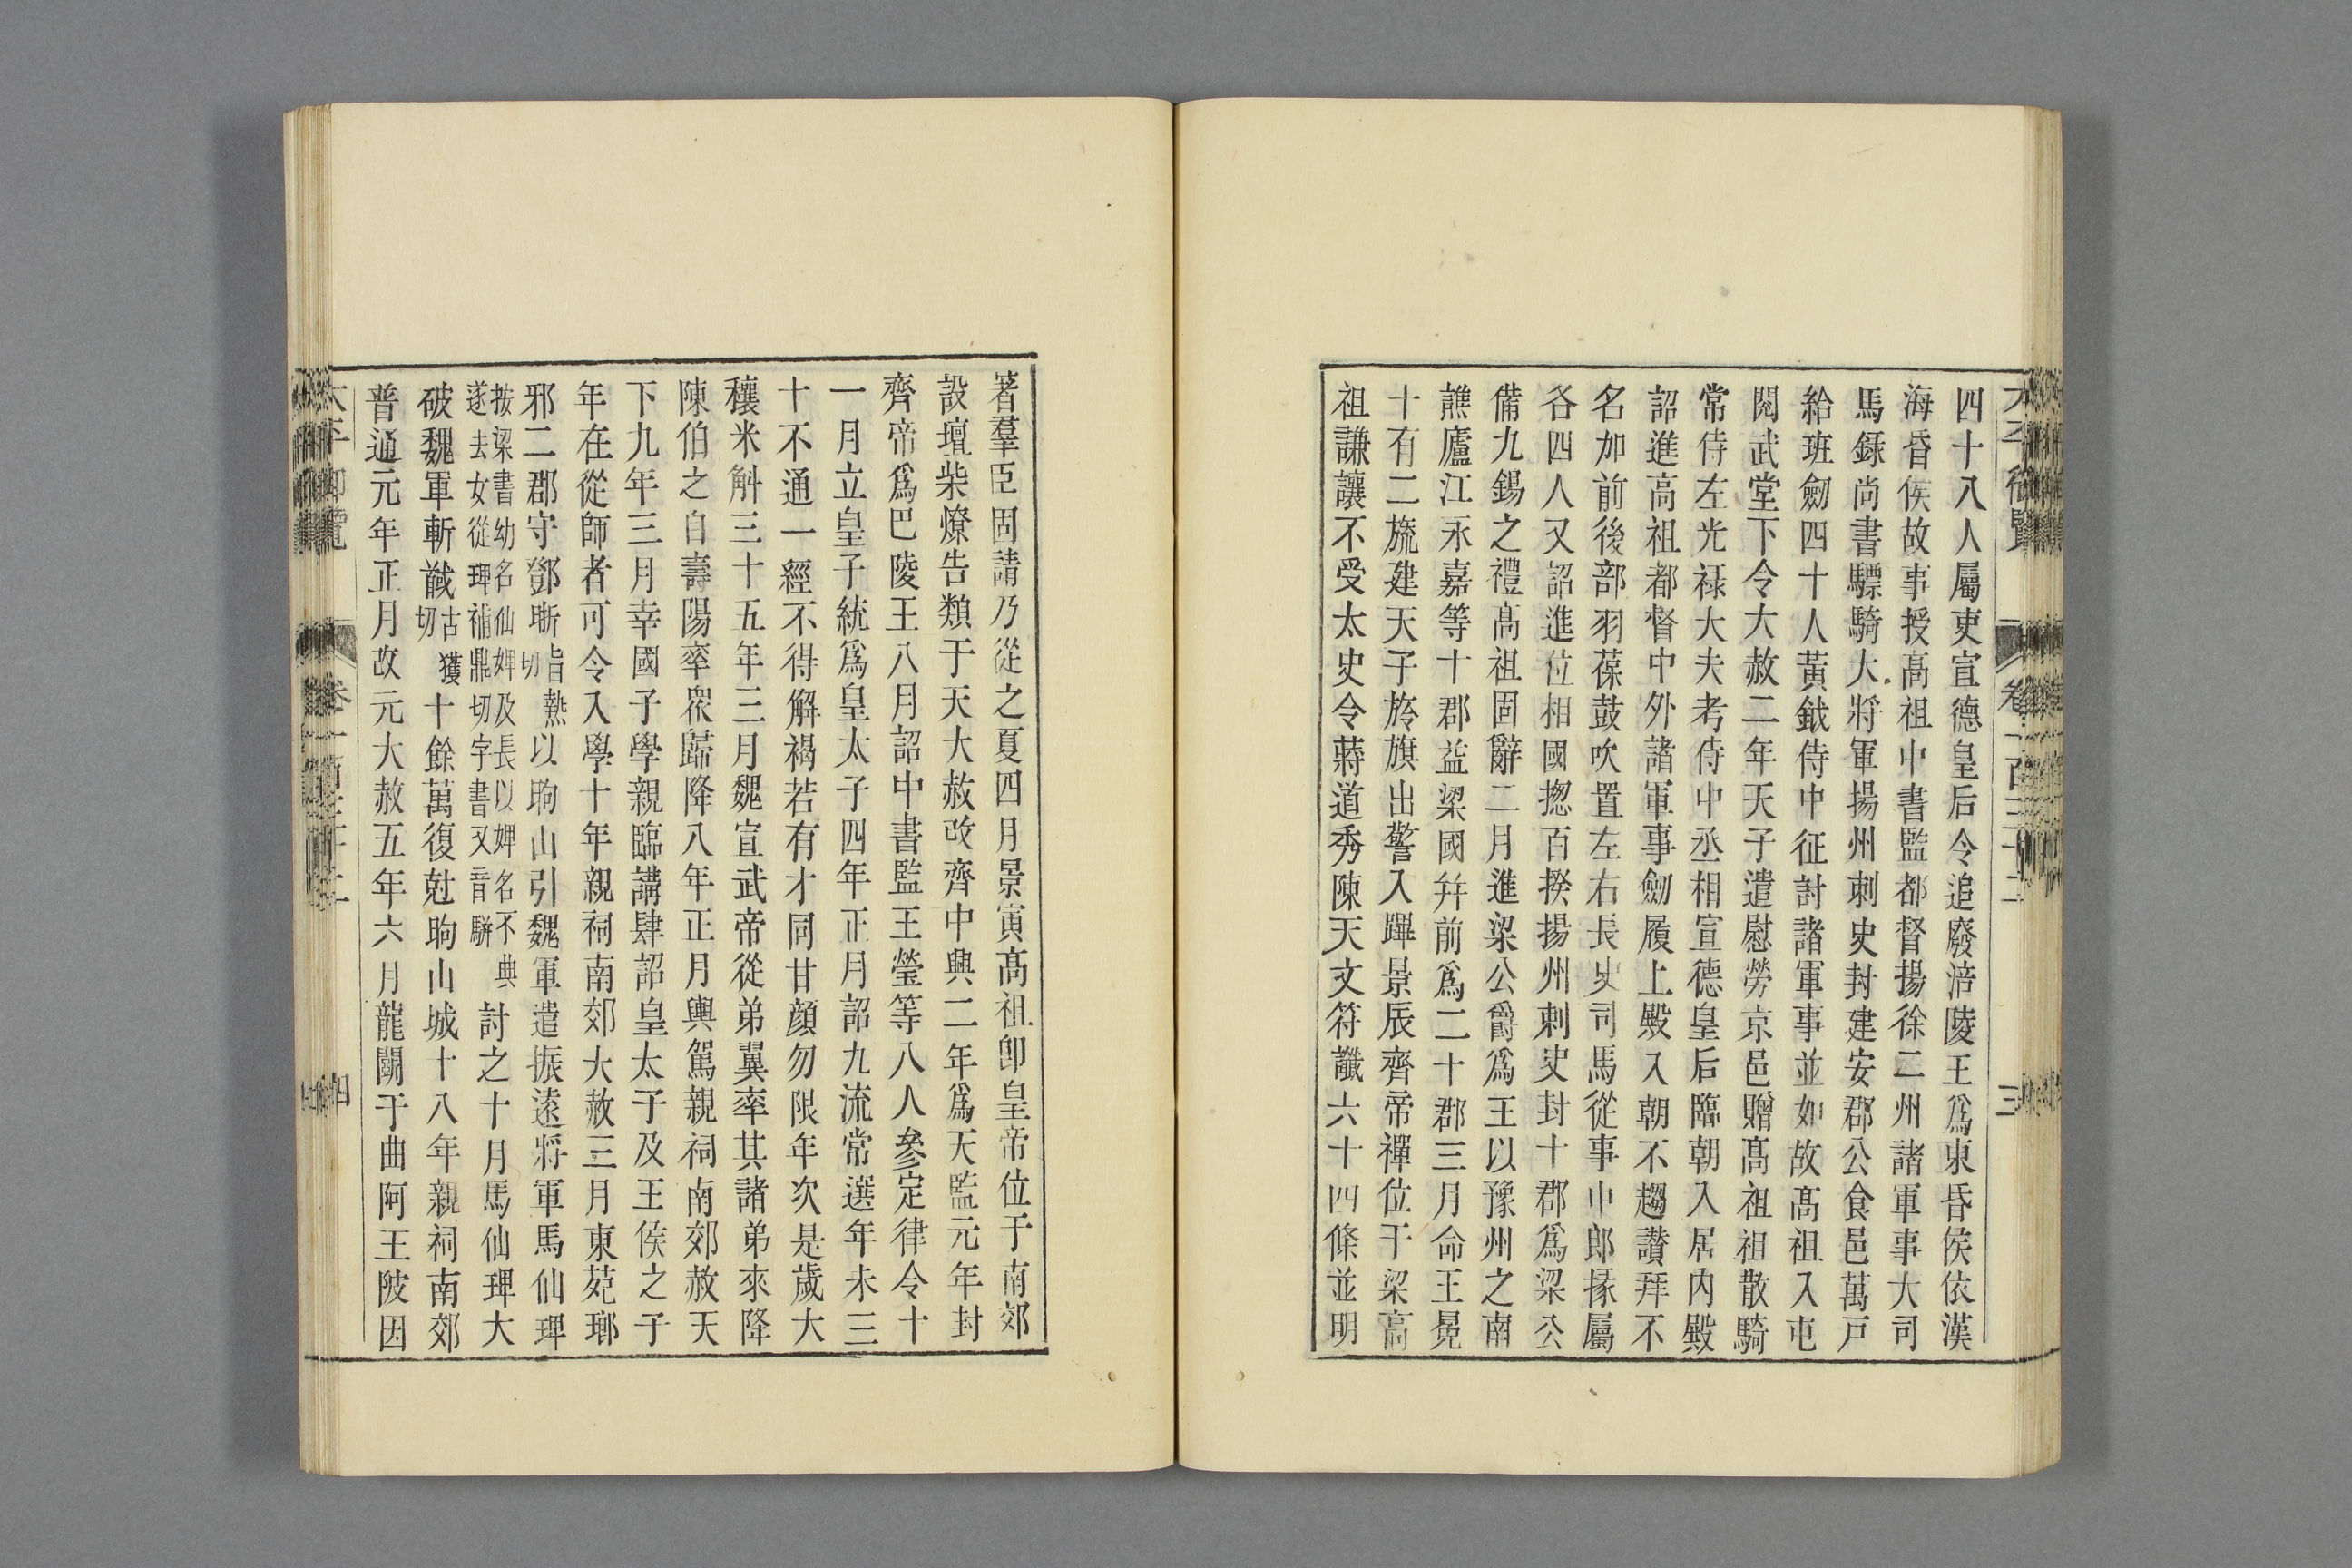 四十八人屬吏宣德皇后令追廢涪陵王爲東昏侯依漢
海昏侯故事授高祖中書監都督揚徐二州諸軍事大司
馬錄尚書驃騎大將軍揚州刺史封建安郡公食邑萬戸
給班劒四十人黃鉞侍中征討諸軍事並如故高祖入屯
閱武堂下令大赦二年天子遣慰勞京邑贈高祖祖散騎
常侍左光祿大夫考侍中丞相宣德皇后臨朝入居内殿
詔進高祖都督中外諸軍事劒履上殿入朝不趨讚拜不
名加前後部羽葆鼓吹置左右長史司馬從事中郎掾屬
各四人又詔進位相國揔百揆揚州刺史封十郡爲梁公
備九錫之禮高祖固辭二月進梁公爵爲王以豫州之南
譙廬江永嘉等十郡益梁國幷前爲二十郡三月命王冕
十有二旒建天子旍旗出警入蹕景辰齊帝禪位于梁高
祖謙讓不受太史令蔣道秀陳天文符讖六十四條並明
著羣臣固請乃從之夏四月景寅高祖卽皇帝位于南郊
設壇柴燎告類于天大赦改齊中興二年爲天監元年封
齊帝爲巴陵王八月詔中書監王瑩等八人參定律令十
一月立皇子統爲皇太子四年正月詔九流常選年未三
十不通一經不得解褐若有才同甘顏勿限年次是歲大
穰米斛三十五年三月魏宣武帝從弟翼率其諸弟來降
陳伯之自壽陽率衆歸降八年正月輿駕親祠南郊赦天
下九年三月幸國子學親臨講肆詔皇太子及王侯之子
年在從師者可令入學十年親祠南郊大赦三月東莞瑯
邪二郡守鄧晣旨熱切以朐山引魏軍遣振遠將軍馬仙琕
按梁書幼名仙婢及長以婢名不典
遂去女從琕補鼎切字書又音騈
討之十月馬仙琕大
破魏軍斬馘古獲切十餘萬復尅朐山城十八年親祠南郊
普通元年正月改元大赦五年六月龍鬭于曲阿王陂因
卷一百三十三
三
四